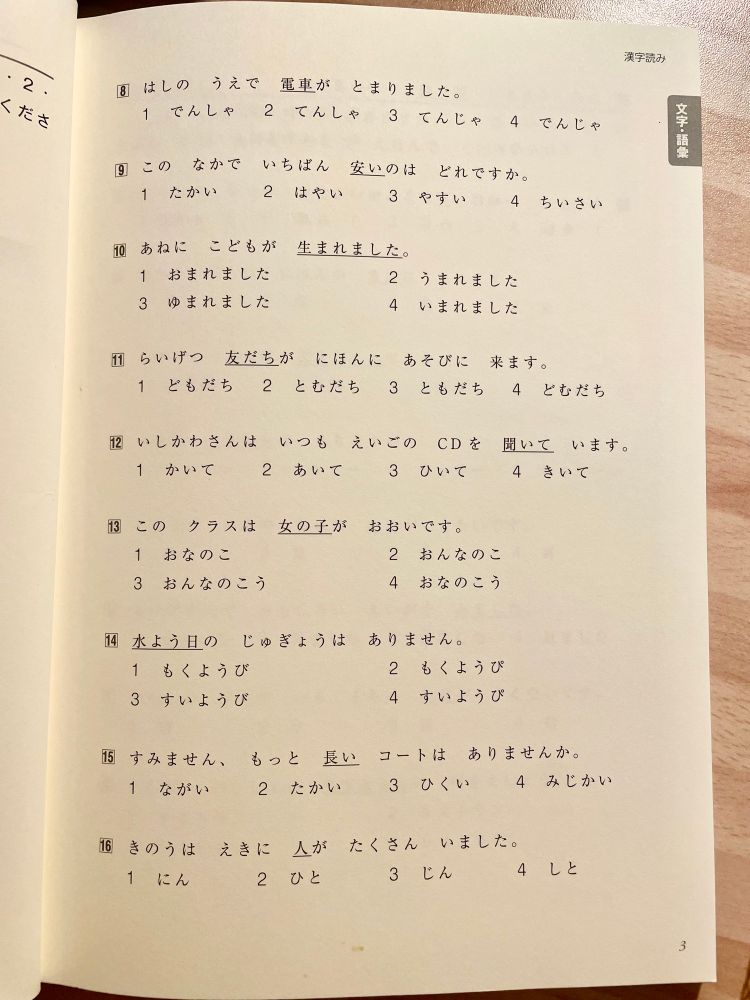 ・2・
くださ
漢字読み
文字・語彙
8 はしの うえで 電車が とまりました。
1 でんしゃ 2 てんしゃ 3 てんじゃ 4 でんじゃ
9 この なかで いちばん 安いのは どれですか。
1 たかい 2 はやい 3 やすい 4 ちいさい
10 あねに こどもが 生まれました。
1 おまれました 2 うまれました
3 ゆまれました 4 いまれました
11 らいげつ 友だちが にほんに あそびに 来ます。
1 どもだち 2 とむだち 3 ともだち 4 どむだち
12 いしかわさんは いつも えいごの CDを 聞いて います。
1 かいて 2 あいて 3 ひいて 4 きいて
13 この クラスは 女の子が おおいです。
1 おなのこ 2 おんなのこ
3 おんなのこう 4 おなのこう
14 水よう日の じゅぎょうは ありません。
1 もくようび 2 もくようぴ
3 すいようび 4 すいようぴ
15 すみません、 もっと 長い コートは ありませんか。
1 ながい 2 たかい 3 ひくい 4 みじかい
16 きのうは えきに 人が たくさん いました。
1 にん 2 ひと 3 じん 4 しと
3